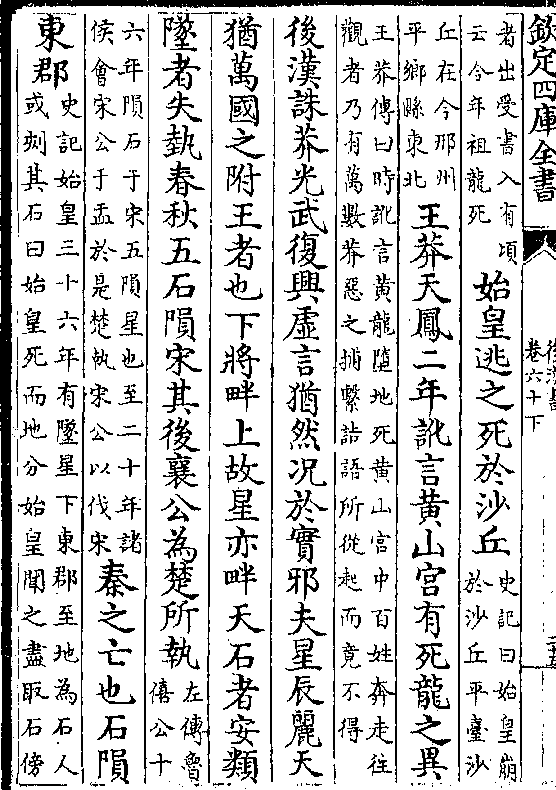 欽定四庫全書
後漢書
卷六十下
者出受書入有頃
云今年祖龍死
始皇逃之死於沙丘
史記曰始皇崩
於沙丘平臺沙
丘在今邢州
平鄉縣東北
王莽天鳳二年訛言黄山宫有死龍之異
王莽傳曰時訛言黄龍墮地死黄山宫中百姓奔走往
觀者乃有萬數莽惡之捕繫詰語所從起而竟不得
後漢誅莽光武復興虛言猶然况於實邪夫星辰麗天
猶萬國之附王者也下將畔上故星亦畔天石者安類
墜者失埶春秋五石隕宋其後襄公為楚所執
左傳魯
僖公十
六年隕石于宋五隕星也至二十年諸
侯會宋公于盂於是楚執宋公以伐宋
秦之亡也石隕
東郡
史記始皇三十六年有墜星下東郡至地為石人
或刻其石曰始皇死而地分始皇聞之盡取石傍